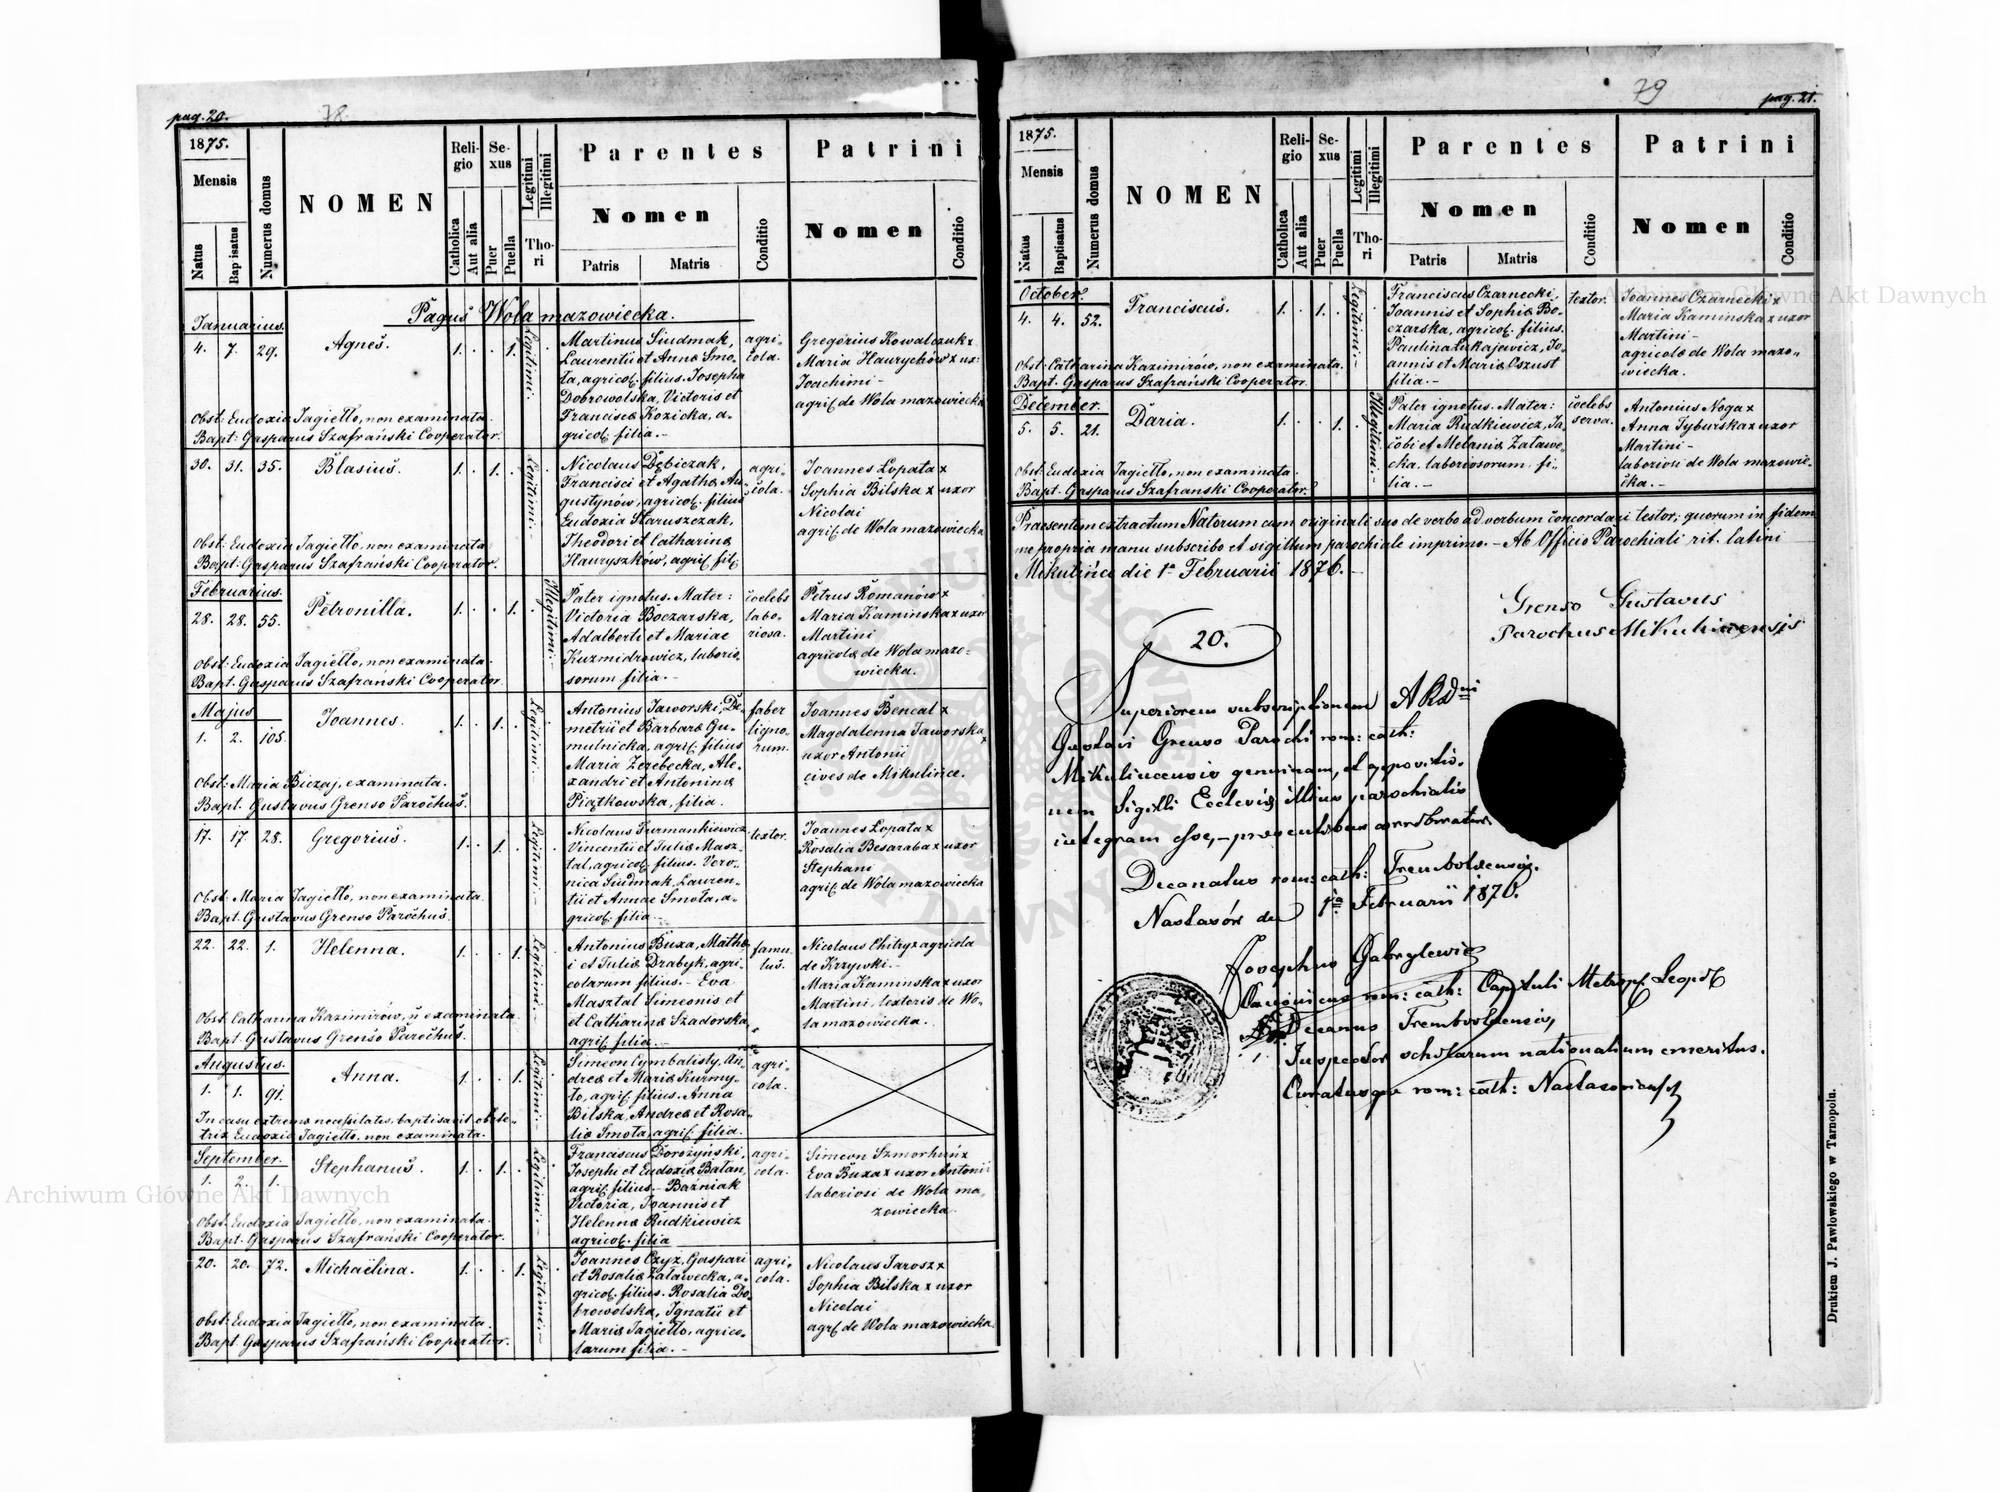 pag. 20.
78.
1875.
Mensis
Natus
Baptisatus
Numerus domus
NOMEN
Religio
Catholica
Aut alia
Sexus
Puer
Puella
Legitimi
Illegitimi
Thori
Parentes
Nomen
Patris
Matris
Conditio
Patrini
Nomen
Conditio
Pagus Wola mazowiecka.
Januarius.
4. 7. 29. Agnes. 1. 1. Legitimi.
Martinus Siudmak,
Laurentii et Annæ Smo-
ta, agricol. filius. Josepha
Dobrowolska, Victoris et
Franciscæ Kozicka, a-
gricol. filia.-
agri-
cola.
Gregorius Kowalczuk x
Maria Hawrychów x ux:
Joachimi -
agric. de Wola mazowiecka
Obst: Eudoxia Jagiełło, non examinata.
Bapt: Gasparus Szafrański Cooperator.
30. 31. 35. Blasius. 1. 1. Legitimi.
Nicolaus Dębiczak,
Francisci et Agathæ Au-
gustynów, agricol. filius
Eudoxia Staruszczak,
Theodori et Catharinæ
Hawryszków, agric. fil.
agri-
cola.
Joannes Łopata x
Sophia Bilska x uxor
Nicolai
agric. de Wola mazowiecka
Obst: Eudoxia Jagiełło, non examinata
Bapt: Gasparus Szafrański Cooperator.
Februarius.
28. 28. 55. Petronilla. 1. 1. Illegitimi.
Pater ignotus. Mater:
Victoria Boczarska,
Adalberti et Mariae
Kuzmidrowicz, laborio-
sorum filia.-
cœlebs
labo-
riosa.
Petrus Romanów x
Maria Kaminska x uxor
Martini
agricolæ de Wola mazo-
wiecka.
Obst: Eudoxia Jagiełło, non examinata.
Bapt. Gasparus Szafranski Cooperator
Majus
1. 2. 105. Joannes. 1. 1. Legitimi.
Antonius Jaworski, De-
metrii et Barbaræ Gu-
mulnicka, agric. filius
Maria Zerebecka, Ale-
xandri et Antoninæ
Piątkowska, filia.
faber
ligno-
rum.
Joannes Bencal x
Magdalenna Jaworska x
uxor Antonii
cives de Mikulińce.
Obst: Maria Biczaj, examinata.
Bapt. Gustavus Grenso Parochus.
17. 17. 28. Gregorius. 1. 1. Legitimi.
Nicolaus Surmankiewicz
Vincentii et Juliæ Masz-
tal, agricol. filius. Vero-
nica Siudmak, Lauren-
tii et Annae Smota, a-
gricol. filia.-
textor.
Joannes Łopata x
Rosalia Besaraba x uxor
Stephani
agric. de Wola mazowiecka
Obst: Maria Jagiełło, non examinata.
Bapt. Gustavus Grenso Parochus.
22. 22. 1. Helenna. 1. 1. Legitimi.
Antonius Buxa, Mathæ-
i et Juliæ Drabyk, agri-
colarum filius.- Eva
Masztal Simeonis et
et Catharinæ Szadorska,
agric. filia.-
famu-
lus.
Nicolaus Chitry x agricola
de Krzywki.-
Maria Kaminska x uxor
Martini, textoris de Wo-
la mazowiecka.
Obst. Catharina Kazimirów, ñ examinata
Bapt. Gustavus Grenso Parochus.
Augustus.
1. 1. 91. Anna. 1. 1. Legitimi.
Simeon Cymbalisty, An-
dreæ et Mariæ Kurmy-
to, agric. filius. Anna
Bilska, Andreæ et Rosa-
liæ Smota, agric. filia.
agri-
cola.
In casu extremæ necessitatis, baptisavit obste-
trix Eudoxia Jagiełło, non examinata.
September.
1. 2. 1. Stephanus. 1. 1. Legitimi.
Franciscus Dorożyński,
Josephi et Eudoxiæ Bałan,
agric. filius.- Bazniak
Victoria, Joannis et
Helennæ Rudkiewicz
agricol. filia
agri-
cola.
Simeon Szmorhún x
Eva Buxa x uxor Antonii
laboriosi de Wola ma-
zowiecka.
Obst: Eudoxia Jagiełło, non examinata.
Bapt. Gasparus Szafrański Cooperator.
20. 20. 72. Michaëlina. 1. 1. Legitimi.
Joannes Czyż, Gaspari
et Rosaliæ Załawecka, a-
gricol. filius. Rosalia Do-
browolska, Ignatii et
Mariæ Jagiełło, agrico-
larum filia.-
agri-
cola.
Nicolaus Jarosz x
Sophia Bilska x uxor
Nicolai
agric. de Wola mazowiecka
Obst: Eudoxia Jagiełło, non examinata.
Bapt. Gasparus Szafrański Cooperator.
79
pag. 21.
1875.
Mensis
Natus
Baptisatus
Numerus domus
NOMEN
Religio
Catholica
Aut alia
Sexus
Puer
Puella
Legitimi
Illegitimi
Thori
Parentes
Nomen
Patris
Matris
Conditio
Patrini
Nomen
Conditio
October.
4. 4. 52. Franciscus. 1. 1. Legitimi.
Franciscus Czarnecki,
Joannis et Sophiæ Bo-
czarska, agricol. filius.
Paulina Łukajewicz, Jo-
annis et Mariæ Oszust
filia.-
textor.
Joannes Czarnecki x
Maria Kaminska x uxor
Martini -
agricolæ de Wola mazo-
wiecka.
Obst: Catharina Kazimirów, non examinata.
Bapt. Gasparus Szafrański Cooperator.
December.
5. 5. 21. Daria. 1. 1. Illegitimi.
Pater ignotus. Mater:
Maria Rudkiewicz, Ja-
cobi et Melaniæ Załawe-
cka, laboriosorum fi-
lia.-
cœlebs
serva.
Antonius Noga x
Anna Tyburska x uxor
Martini -
laboriosi de Wola mazowie-
cka.-
Obst: Eudoxia Jagiełło, non examinata.
Bapt. Gasparus Szafranski Cooperator.
Praesentem extractum Natorum cum originali suo de verbo ad verbum concordari testor; quorum in fidem
me propria manu subscribo et sigillum parochiale imprimo.- Ab Officio Parochiali rit. latini
Mikulińce die 1a Februarii 1876.-
Grenso Gustavus
Parochus Mikulincensis
20.
Superiorem subscriptionem ARdni
Gustavi Grenso Parochi rom: cath:
Mikulincensis genuinam, et appositio-
nem Sigilli Ecclesiæ illius parochialis
integram esse,- præsentibus corroboratur.
Decanatus rom: cath: Trembowlensis.
Nastasów die 1a Februarii 1876.
Josephus Gabrylewicz
Canonicus rom: cath: Capituli Metrop. Leopol
Decanus Trembowlensis,
Inspector scholarum nationalium emeritus.
Curatusque rom: cath: Nastasoviensis
Drukiem J. Pawłowskiego w Tarnopolu.
Archiwum Główne Akt Dawnych
Archiwum Główne Akt Dawnych